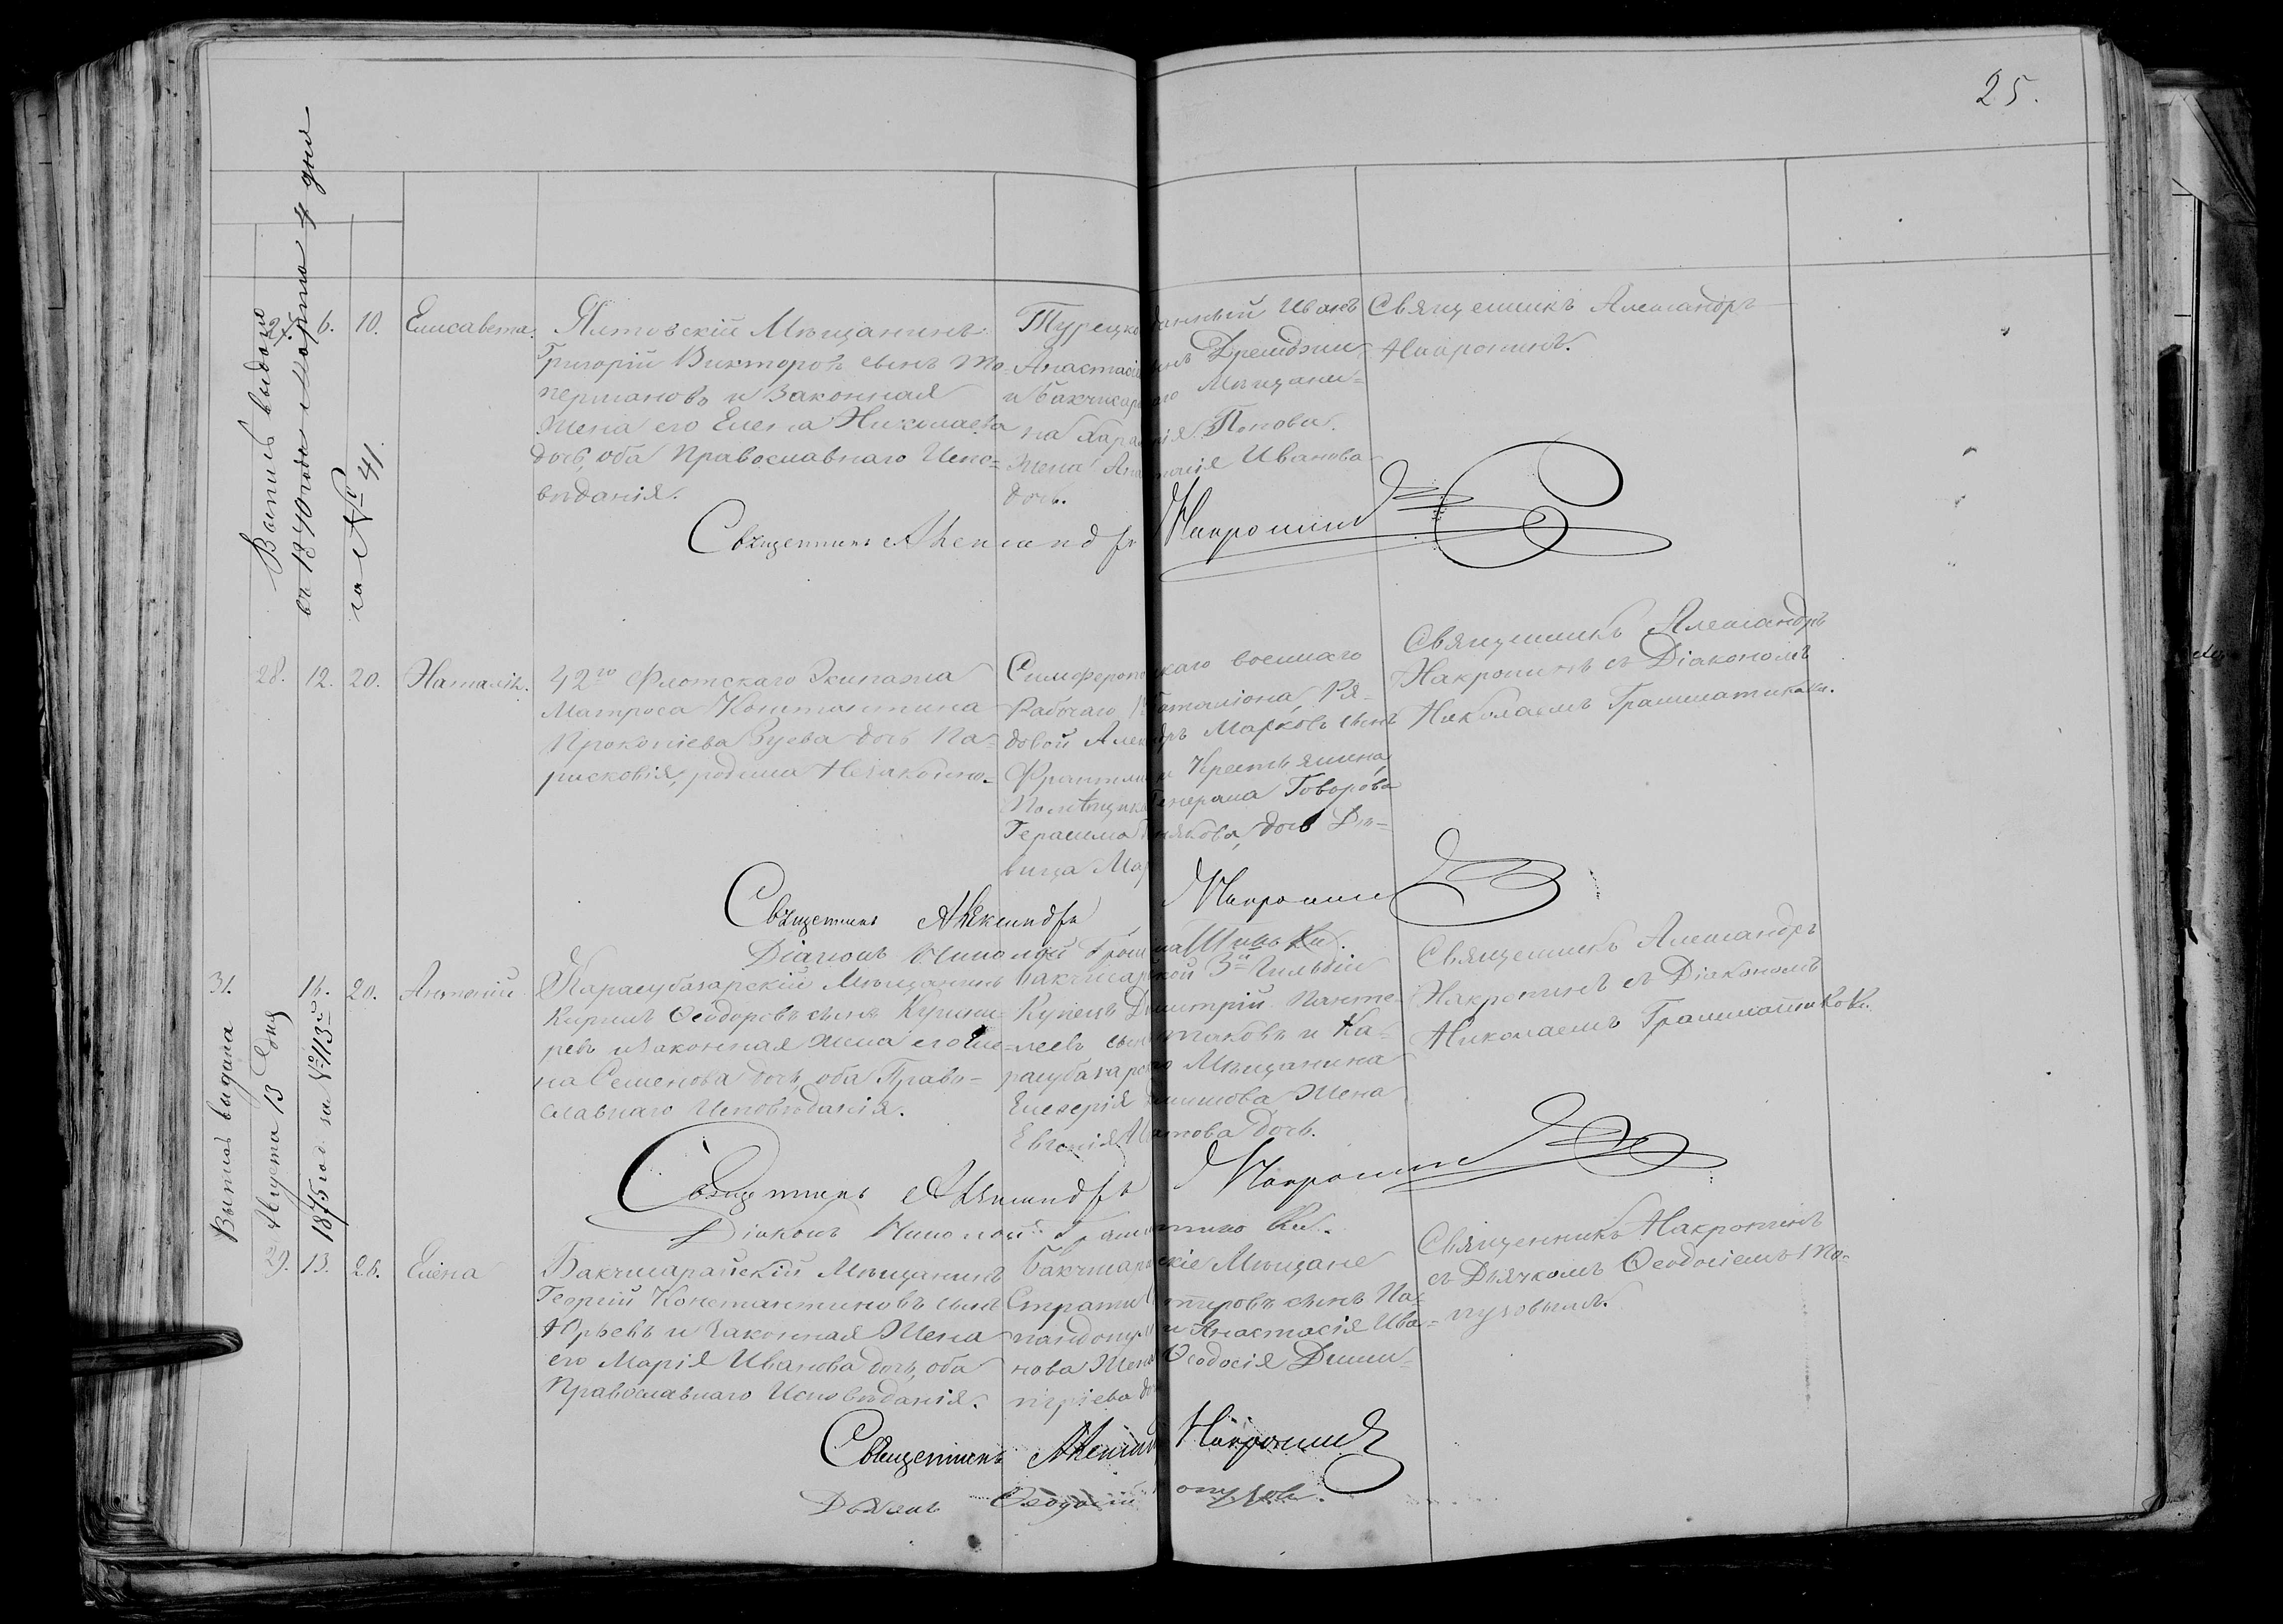 25.
Выпись выдана
въ 1870 года Марта 4 дня
за № 41.
27. 6. 10. Елисавета.
Ялтовскій Мѣщанинъ
Григорій Викторовъ сынъ То-
пермановъ и Законная
Жена его Елена Николаева
дочь, оба Православнаго Испо-
вѣданія.
Турецко данный Иванъ
Анастасіе
и Бакчисара Мѣщани-
на Попова.
Жена Анастасія Иванова
дочь.
Священникъ Александръ
Накропинъ.
Священникъ Александръ Накропинъ
28. 12. 20. Наталія.
42го Флотскаго Экипажа
Матроса Константина
Прокопіева Зуева дочь Па-
расковія, родила Незаконно.
Симферопольскаго военнаго
Рабочаго Баталіона, Ря-
довой Александръ Марковъ сынъ
Крестьянина,
Помѣщика Генерала Говорова
Герасима дочь Дѣ-
вица Мар
Священникъ Александръ
Накропинъ съ Діакономъ
Николаемъ Грамматиковы.
Священникъ Александръ Накропинъ
Діаконъ Николай
Выпись выдана
Августа 13 дня
1875 год за № 113
31. 16. 20. Антоній
Карасубазарскій Мѣщанинъ
Кирилъ Ѳеодоровъ сынъ
ревъ и Законная Жена его Еле-
на Семенова дочь, оба Право-
славнаго Исповѣданія.
Бакчисарайской 3й Гильдіи
Купецъ Дмитрій Панте-
леевъ сынъ и Ка-
расубазарскаго Мѣщанина
Елевѳерія Жена
Евгенія дочь.
Священникъ Александръ
Накропинъ съ Діакономъ
Николаемъ Грамматиковы.
Священникъ Александръ Накропинъ
Діаконъ Николай
29. 13. 26. Елена
Бакчисарайскій Мѣщанинъ
Георгій Константиновъ сынъ
Юрьевъ и Законная Жена
его Марія Иванова дочь, оба
Православнаго Исповѣданія.
Бакчисарайскіе Мѣщане
сынъ Па-
пандопуло и Анастасія Ива-
нова Жена Ѳеодосія Дими-
тріева
Священникъ Накропинъ
съ Дьячкомъ Ѳеодосіемъ По-
пузовымъ.
Священникъ Александръ Накропинъ
Дьячекъ Ѳеодосій Попузовъ.